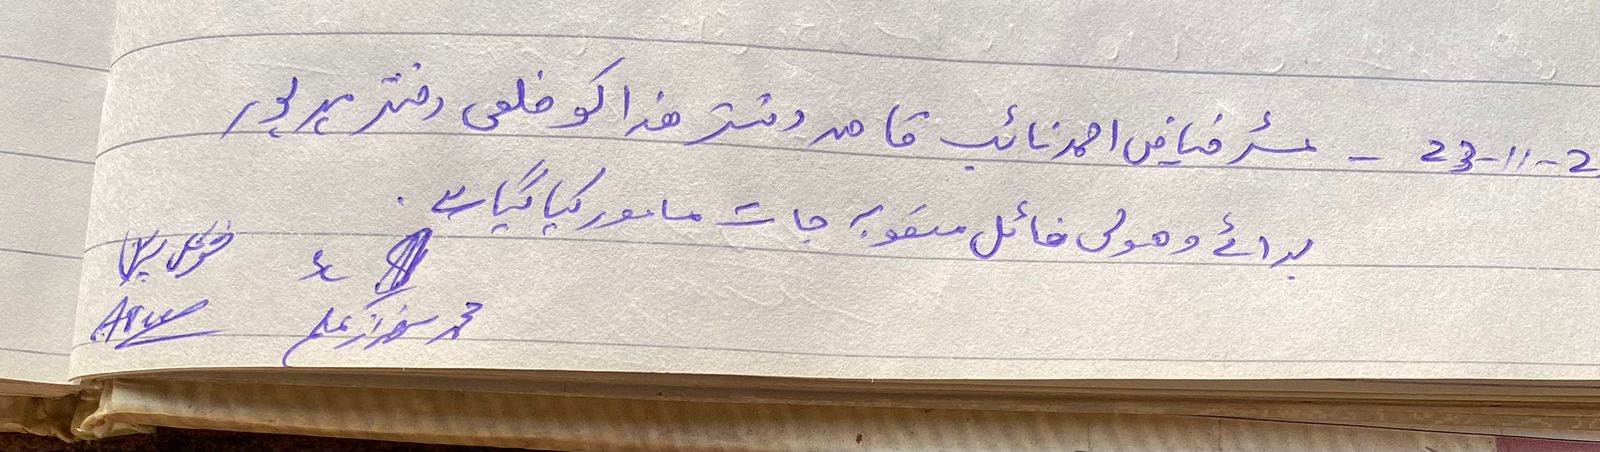 23-11-2 - مسٹر فیاض احمد نائب قاصد دفتر ھذا کو ضلعی دفتر میرپور
برائے وصولی فائل منصوبہ جات مامور کیا گیا ہے۔
محمد سرفراز